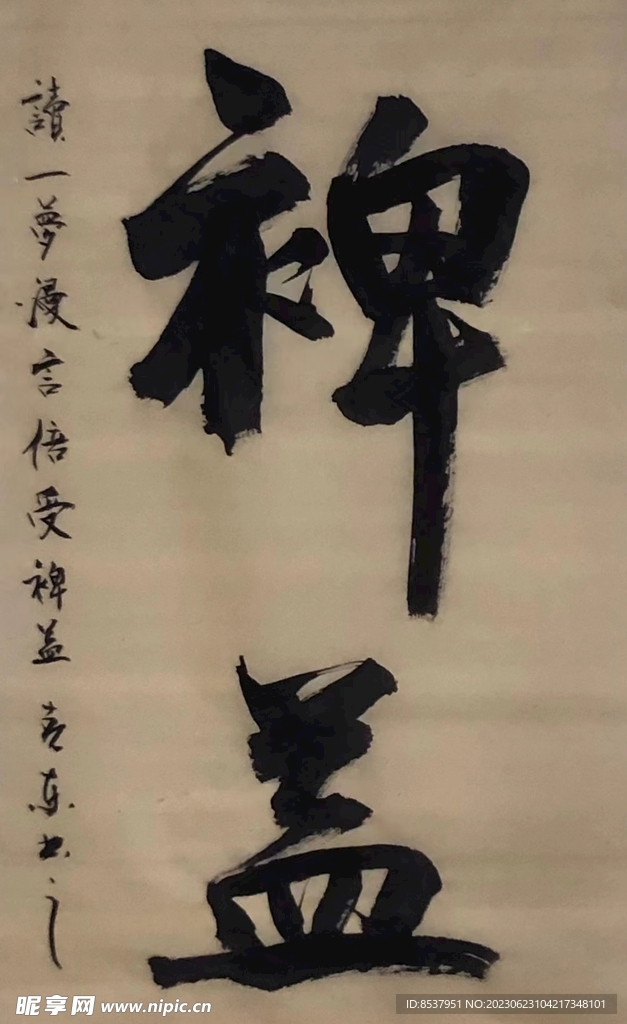 裨益
讀一夢漫言倍受裨益 春東书之
昵享网 www.nipic.cn
ID:8537951 NO:20230623104217348101